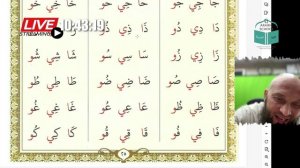 LIVE 10:43:19
STREAMING
جَا جِي جُو حَا حِي حُو خَا خِي خُو
دَا دِي دُو ذَا ذِي ذُو رَا رِي رُو
زَا زِي زُو سَا سِي سُو شَا شِي شُو
صَا صِي صُو ضَا ضِي ضُو طَا طِي طُو
ظَا ظِي ظُو عَا عِي عُو غَا غِي غُو
فَا فِي فُو قَا قِي قُو كَا كِي كُو